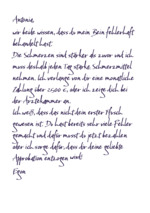 Antonia,
wir beide wissen, dass du mein Bein fehlerhaft
behandelt hast.
Die Schmerzen sind stärker als zuvor und ich
muss deshalb jeden Tag starke Schmerzmittel
nehmen. Ich verlange von dir eine monatliche
Zahlung über 2500 €, oder ich zeige dich bei
der Ärztekammer an.
Ich weiß, dass das nicht dein erster Pfusch
gewesen ist. Du hast bereits sehr viele Fehler
gemacht und dafür musst du jetzt bezahlen
oder ich sorge dafür, dass dir deine geliebte
Approbation entzogen wird!
Egon